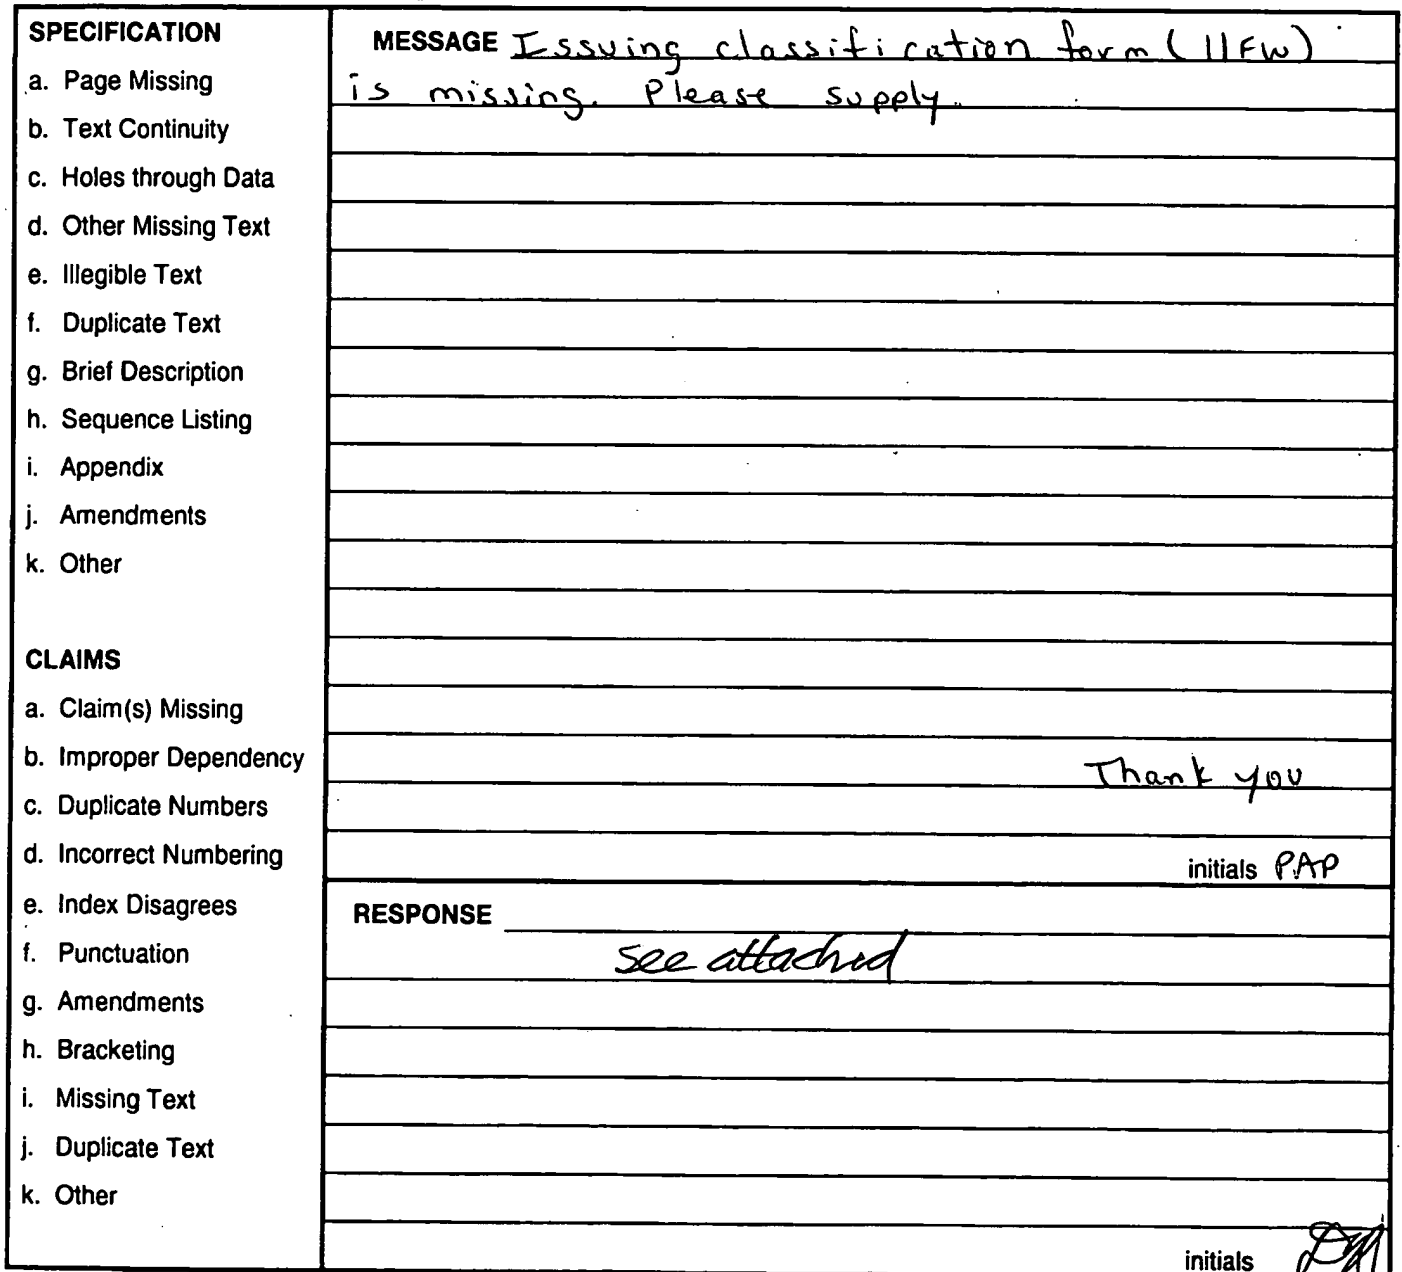 SPECIFICATION
a. Page Missing
b. Text Continuity
c. Holes through Data
d. Other Missing Text
e. Illegible Text
f. Duplicate Text
g. Brief Description
h. Sequence Listing
i. Appendix
j. Amendments
k. Other
CLAIMS
a. Claim(s) Missing
b. Improper Dependency
c. Duplicate Numbers
d. Incorrect Numbering
e. Index Disagrees
f. Punctuation
g. Amendments
h. Bracketing
i. Missing Text
j. Duplicate Text
k. Other
MESSAGE Issuing classification form (IIFW)
is missing. Please supply.
Thank you
initials PAP
RESPONSE
see attached
initials